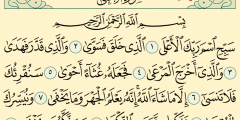 بِسْمِ اللَّهِ الرَّحْمَٰنِ الرَّحِيمِ
سَبِّحِ اسْمَ رَبِّكَ الْأَعْلَى ١ الَّذِي خَلَقَ فَسَوَّىٰ ٢ وَالَّذِي قَدَّرَ فَهَدَىٰ
٣ وَالَّذِي أَخْرَجَ الْمَرْعَىٰ ٤ فَجَعَلَهُ غُثَاءً أَحْوَىٰ ٥ سَنُقْرِئُكَ
فَلَا تَنسَىٰ ٦ إِلَّا مَا شَاءَ اللَّهُ إِنَّهُ يَعْلَمُ الْجَهْرَ وَمَا يَخْفَىٰ ٧ وَنُيَسِّرُكَ